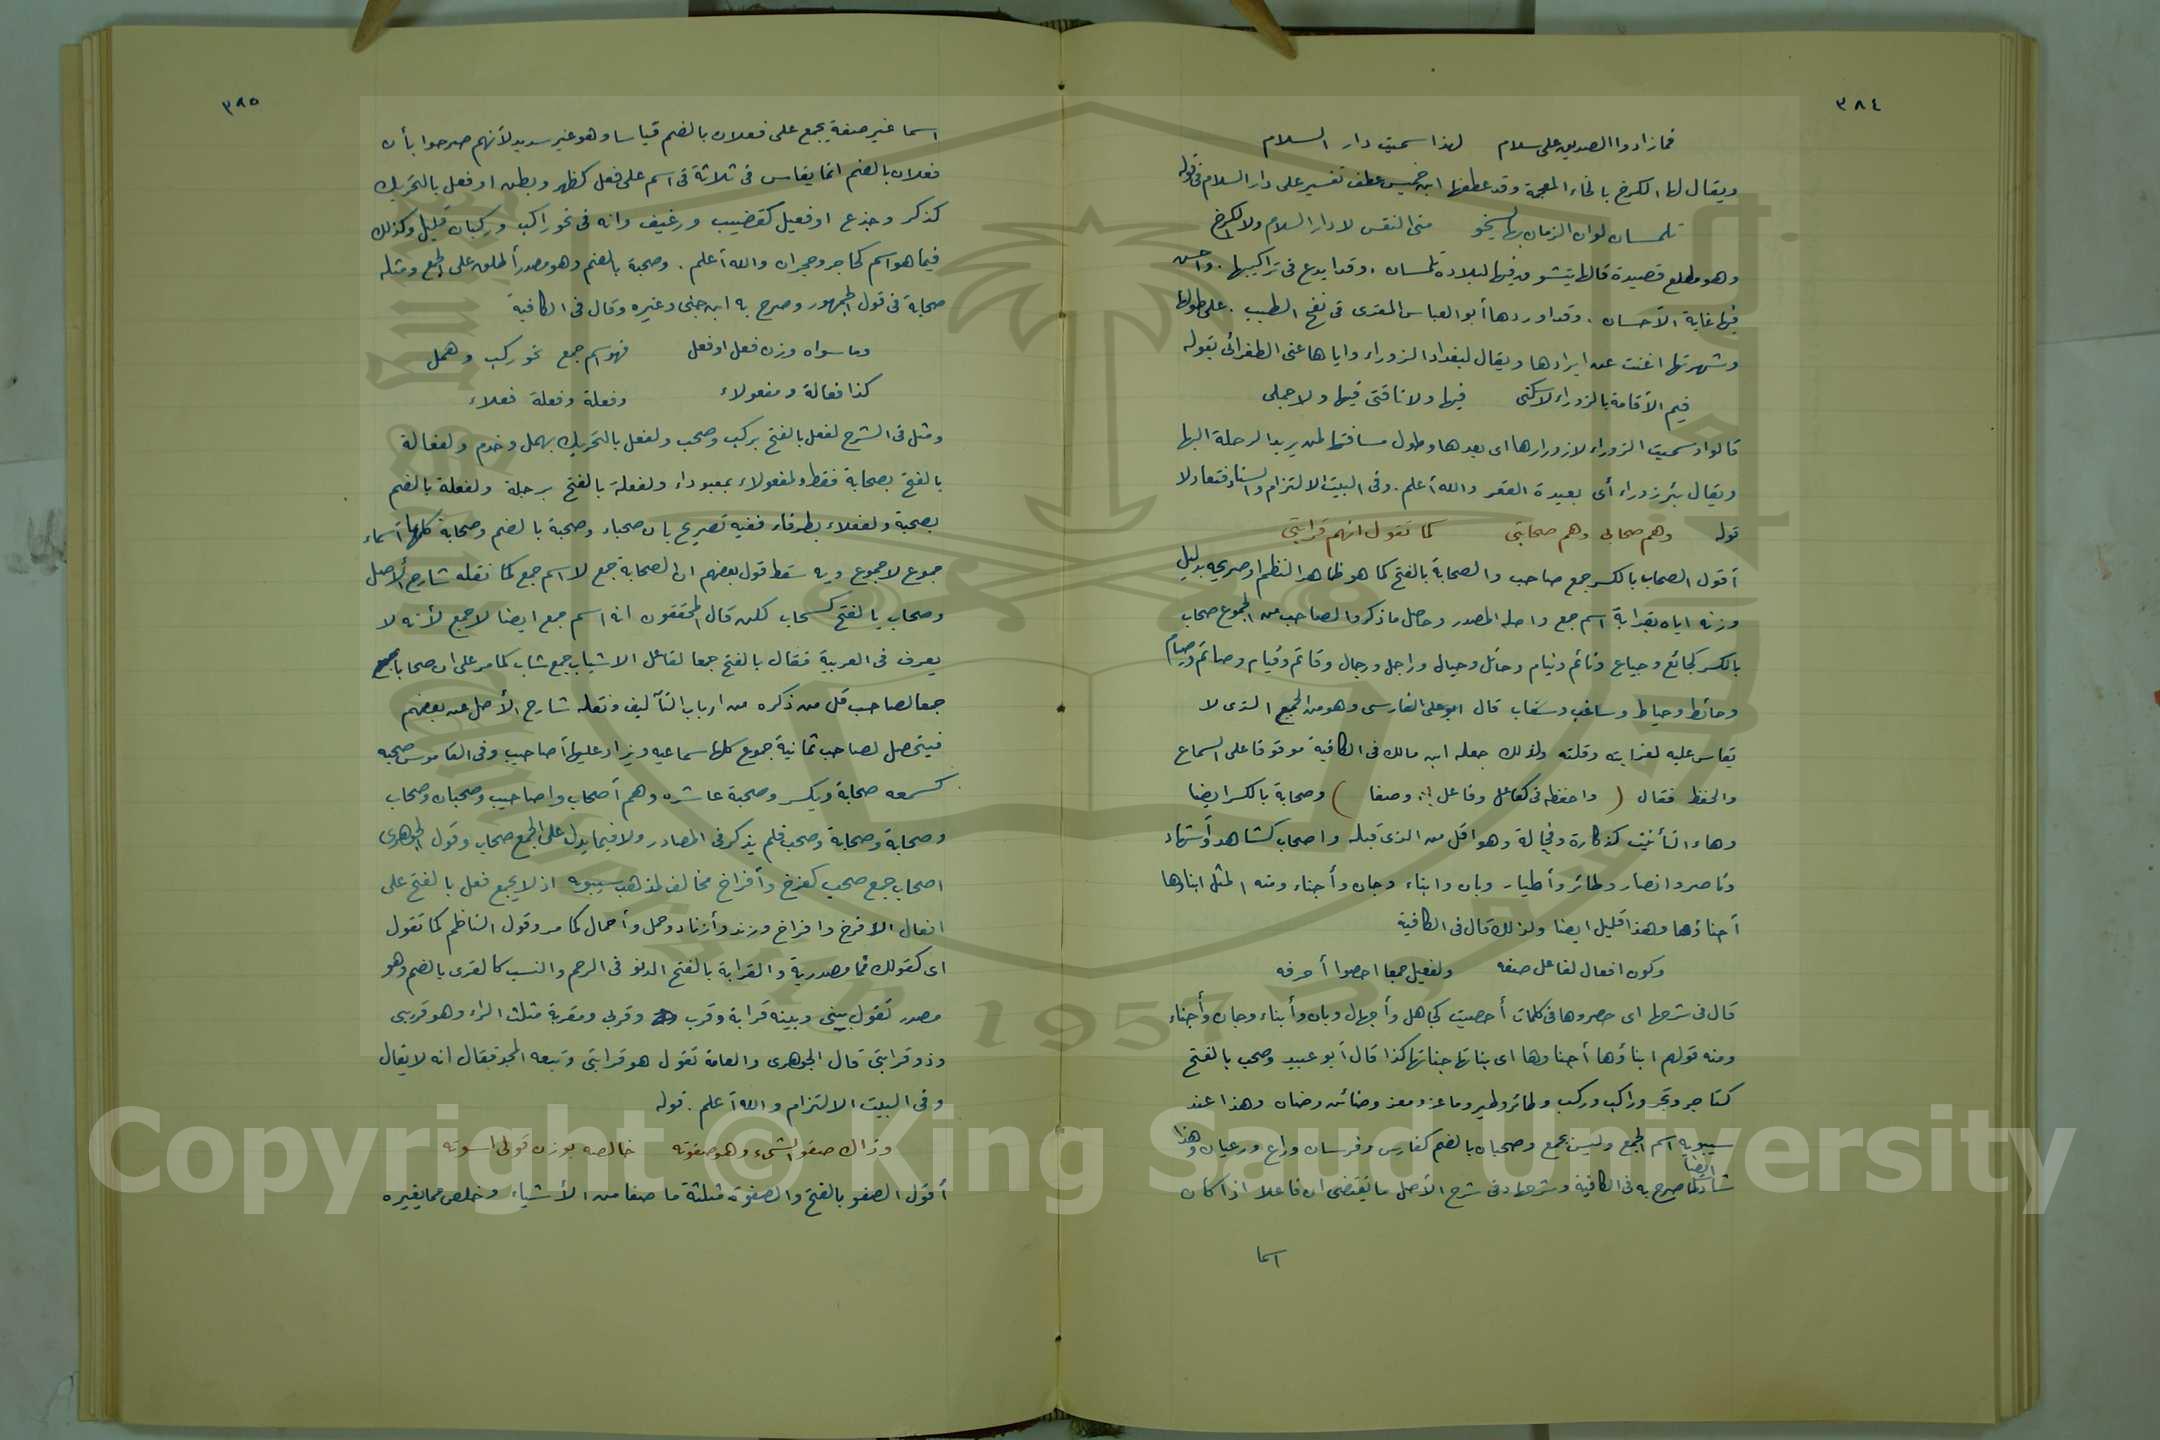 ٣٨٤
فما زادوا الصديق على سلام لهذا سميت دار السلام
ويقال لها الكرخ بالخاء المعجمة وقد عطفها ابن خميس عطف تفسير على دار السلام في قوله
تلمسان لو ان الزمان بها يسخو منى النفس لا دار السلام ولا الكرخ
وهو مطلع قصيدة قالها يتشوق فيها لبلاده تلمسان . وقد ابدع في تراكيبها . واحسن
فيها غاية الأحسان . وقد اوردها أبو العباس المقرى في نفح الطيب . على طولها
وشهرتها اغنت عن ايرادها ويقال لبغداد الزوراء واياها عنى الطغرائى بقوله
فيم الأقامة بالزوراء لا سكنى فيها ولا ناقتى فيها ولا جملى
قالوا وسميت الزوراء لازورارها اى بعدها وطول مسافتها لمن يريد الرحلة اليها
ويقال بئر زوراء أى بعيدة القعر والله أعلم . وفى البيت الالتزام والسناد فتعادلا
قوله وهم صحابى وهم صحابتى كما تقول انهم قرابتى
أقول الصحاب بالكسر جمع صاحب والصحابة بالفتح كما هو ظاهر النظم او صريحه بدليل
وزنه اياه بقرابة اسم جمع واصله المصدر وحاصل ما ذكروا لصاحب من الجموع صحاب
بالكسر كجائع وجياع ونائم ونيام وحائل وحيال وراجل ورجال وقائم وقيام وصائم وصيام
وحائط وحياط وساغب وسغاب قال ابو على الفارسى وهو من الجمع الذى لا
يقاس عليه لغرابته وقلته ولذلك جعله ابن مالك في الكافية موقوفا على السماع
والحفظ فقال ( واحفظه في كفاعل وفاعل : وصفا ) وصحابة بالكسر ايضا
وهاء التأنيث كذكارة وفحالة وهو اقل من الذى قبله واصحاب كشاهد وأشهاد
وناصر وانصار وطائر وأطيار وبان وابناء وجان وأجناء ومنه المثل ابناؤها
أجناؤها وهذا قليل ايضا ولذلك قال في الكافية
وكون افعال لفاعل صفه ولفعيل جمعا احصوا أحرفه
قال في شرحها اى حصروها في كلمات أحصيت كجاهل وأجهال وبان وأبناء وجان وأجناء
ومنه قولهم ابناؤها أجناؤها اى بناتها جناتها كذا قال أبو عبيد وصحب بالفتح
كتاجر وتجر وراكب وركب وطائر وطير وماعز ومعز وضائن وضان وهذا عند
سيبويه اسم الجمع وليس بجمع وصحبان بالضم كفارس وفرسان وراع ورعيان وهذا
ايضا
شاذ كما صرح به في الكافية وشرحها وفى شرح الأصل ما يقتضى ان فاعلا اذا كان
اسما
٣٨٥
اسما غير صفة يجمع على فعلان بالضم قياسا وهو غير سديد لأنهم صرحوا بأن
فعلان بالضم انما يقاس في ثلاثة في اسم على فعل كظهر وبطن او فعل بالتحريك
كذكر وجذع او فعيل كقضيب ورغيف وانه في نحو راكب وركبان قليل وكذلك
فيما هو اسم كحاجر وحجران والله أعلم . وصحبة بالضم وهو مصدر أطلق على الجمع ومثله
صحابة في قول الجمهور وصرح به ابن جنى وغيره وقال في الكافية
وما سواه وزن فعل او فعل فهو اسم جمع نحو ركب وهمل
كذا فعالة ومفعولاء وفعلة وفعلة فعلاء
ومثل في الشرح لفعل بالفتح بركب وصحب ولفعل بالتحريك بهمل وخدم ولفعالة
بالفتح بصحابة فقط ولمفعولاء بمعبوداء ولفعلة بالفتح برجلة ولفعلة بالضم
بصحبة ولفعلاء بطرفاء ففيه تصريح بان صحباء وصحبة بالضم وصحابة كلها أسماء
جموع لا جموع وبه سقط قول بعضهم ان الصحابة جمع لا اسم جمع كما نقله شارح الأصل
وصحاب بالفتح كسحاب لكن قال المحققون انه اسم جمع ايضا لا جمع لأنه لا
يعرف في العربية فعال بالفتح جمعا لفاعل الا شباب جمع شاب كما مر على ان صحابا
جمعا لصاحب قل من ذكره من ارباب التآليف ونقله شارح الأصل عن بعضهم
فيتحصل لصاحب ثمانية جموع كلها سماعيه ويزاد عليها أصاحيب وفى القاموس صحبه
كسمعه صحابة ويكسر وصحبة عاشره وهم أصحاب واصاحيب وصحبان وصحاب
وصحابة وصحابة وصحب فلم يذكر في المصادر ولا فيما يدل على الجمع صحاب وقول الجوهرى
اصحاب جمع صحب كفرخ وأفراخ مخالف لمذهب سيبويه اذ لا يجمع فعل بالفتح على
افعال الا فرخ وافراخ وزند وأزناد وحمل وأحمال كما مر وقول الناظم كما تقول
اى كقولك فما مصدرية والقرابة بالفتح الدنو في الرحم والنسب كالقربى بالضم وهو
مصدر تقول بينى وبينه قرابة وقرب وقربى ومقربة مثلث الراء وهو قريبى
وذو قرابتى قال الجوهرى والعامة تقول هو قرابتى وتبعه المجد فقال انه لا يقال
وفى البيت الالتزام والله أعلم . قوله
وذاك صفو الشىء وهو صفوته خالصه بوزن قولى اسوته
أقول الصفو بالفتح والصفوة مثلثة ما صفا من الأشياء وخلص مما يغيره
Copyright © King Saud University
1957